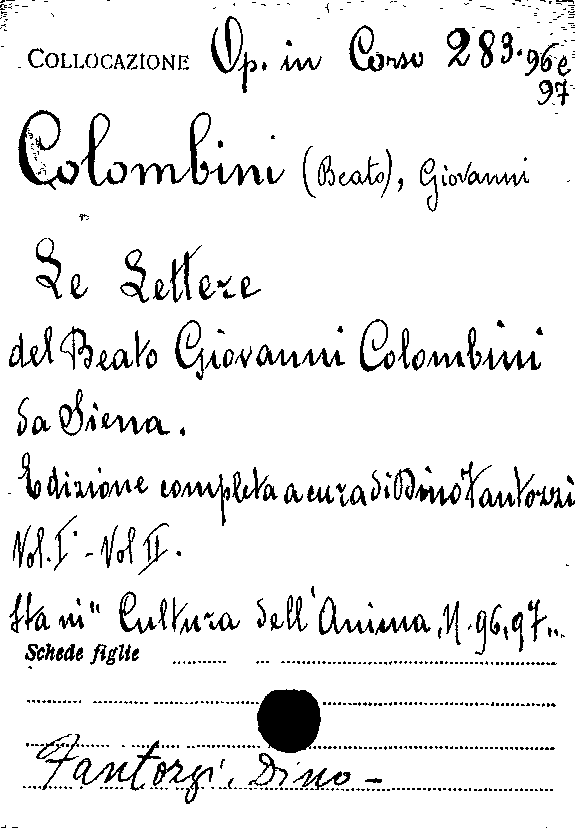 COLLOCAZIONE Op. in Corso 283. 96 e
97
Colombini (Beato), Giovanni
Le Lettere
del Beato Giovanni Colombini
da Siena.
Edizione completa a cura di Dino Fantozzi
Vol. I - Vol II.
Sta in " Cultura dell'Anima, N. 96, 97"
Schede figlie
Fantozzi, Dino -